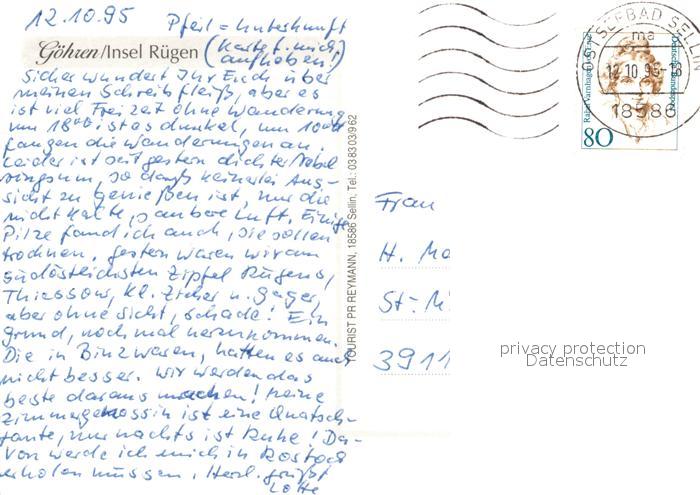 12.10.95 Pfeil = Unterkunft
Göhren/Insel Rügen (Karte f. mich aufheben!)
Sicher wundert Ihr Euch über
meinen Schreibfleiß, aber es
ist viel Freizeit ohne Wanderung
um 18°° ist es dunkel, um 10°°
fangen die Wanderungen an.
Leider ist seit gestern dichter Nebel
ringsum, so daß keinerlei Aus-
sicht zu genießen ist, nur die
nicht kalte, saubere Luft. Einige
Pilze fand ich auch, die sollen
trocknen. Gestern waren wir am
südöstlichsten Zipfel Rügens,
Thiessow, Kl. Zicker u. Gager,
aber ohne Sicht, schade! Ein
Grund, nochmal herzukommen.
Die in Binz waren, hatten es auch
nicht besser. Wir werden das
beste daraus machen! Meine
Zimmergenossin ist eine Quatsch-
tante, nur nachts ist Ruhe! Da-
von werde ich mich in Rostock
erholen müssen. Herzl. grüßt
Lotte
TOURIST PR REYMANN, 18586 Sellin, Tel.: 038303/962
Frau
H. Ma
St-M
3911
OSTSEEBAD SELLIN
ma
12.10.95-18
18586
Rahel Varnhagen von Ense
Deutsche Bundespost
80
privacy protection
Datenschutz